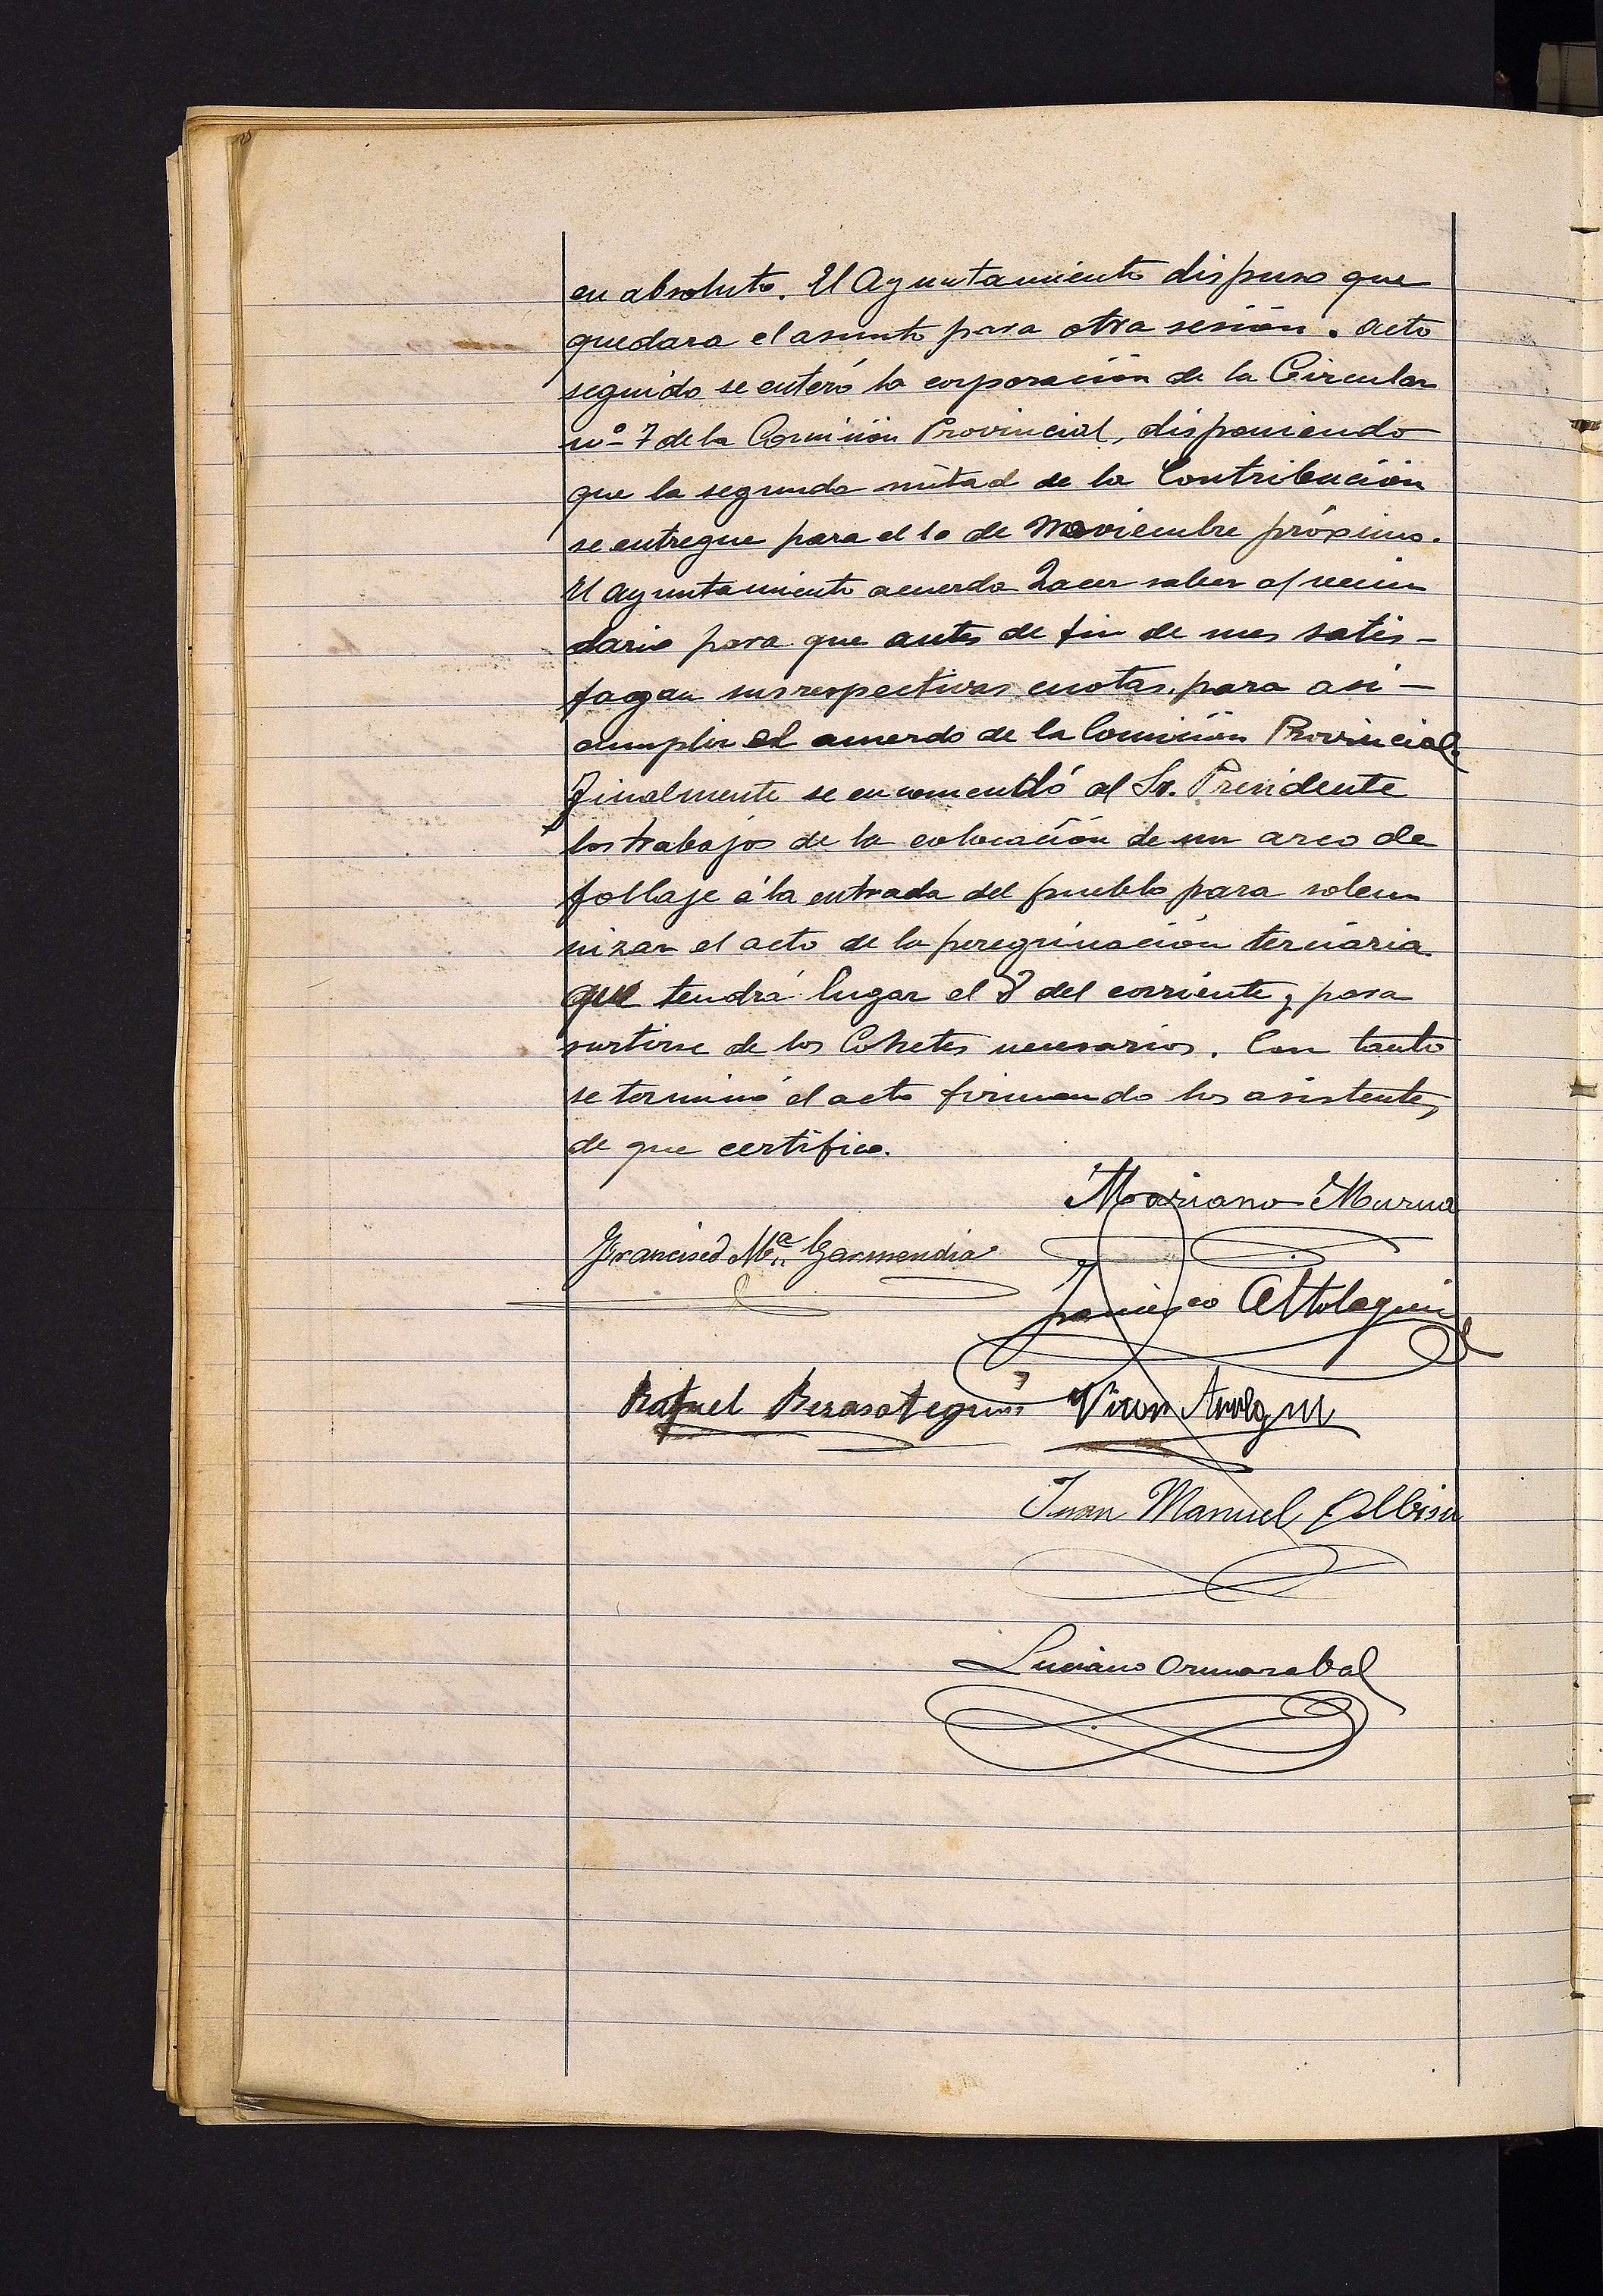 en absoluto. El Ayuntamiento dispuso que
quedara el asunto para otra sesión. Acto
seguido se enteró la corporación de la Circular
nº 7 de la Comisión Provincial, disponiendo
que la segunda mitad de la Contribución
se entregue para el 10 de Noviembre próximo.
El Ayuntamiento acuerda hacer saber al vecin
dario para que antes de fin de mes satis-
fagan sus respectivas cuotas, para asi-
cumplir el acuerdo de la Comisión Provincial.
Finalmente se encomendó al Sr. Presidente
los trabajos de la colocación de un arco de
follaje á la entrada del pueblo para solem
nizar el acto de la peregrinación terciaria
que tendrá lugar el 8 del corriente y para
surtirse de los Cohetes necesarios. Con tanto
se terminó el acto firmando los asistentes,
de que certifico.
Mariano Murua
Francisco Mª Garmendia
Francisco Altolaguirre
Rafael Berasategui
Juan Manuel Albisu
Luciano Ormazabal